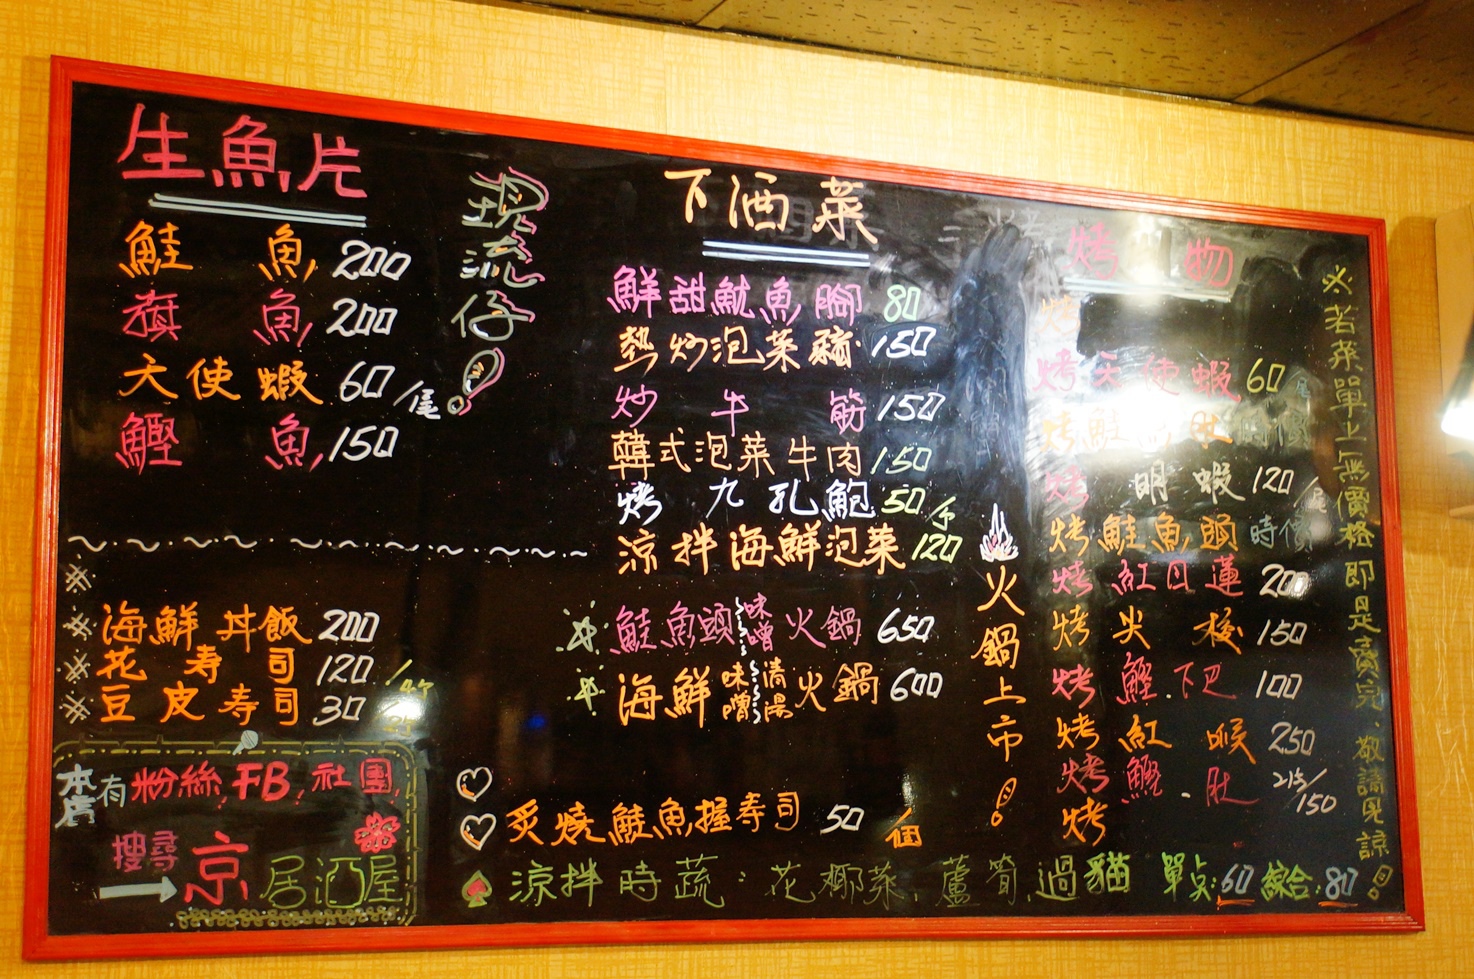 生魚片
鮭魚 200
旗魚 200
天使蝦 60/尾
鰹魚 150
現流仔
海鮮丼飯 200
花壽司 120/
豆皮壽司 30
本店有粉絲,FB,社團,
搜尋
京居酒屋
下酒菜
鮮甜魷魚腳 80
熱炒泡菜豬 150
炒牛筋 150
韓式泡菜牛肉 150
烤九孔鮑 50/
涼拌海鮮泡菜 120
鮭魚頭味噌火鍋 650
海鮮味噌清湯火鍋 600
炙燒鮭魚握壽司 50/個
涼拌時蔬:花椰菜,蘆筍,過貓 單点:60 綜合:80
火鍋上市!
烤物
烤
烤天使蝦 60
烤鮭魚肚 時價
烤明蝦 120/尾
烤鮭魚頭 時價
烤紅目蓮 200
烤尖梭 150
烤鰹.下巴 100
烤紅喉 250
烤鰹.肚 150
烤
若菜單上無價格即是賣完、敬請見諒!